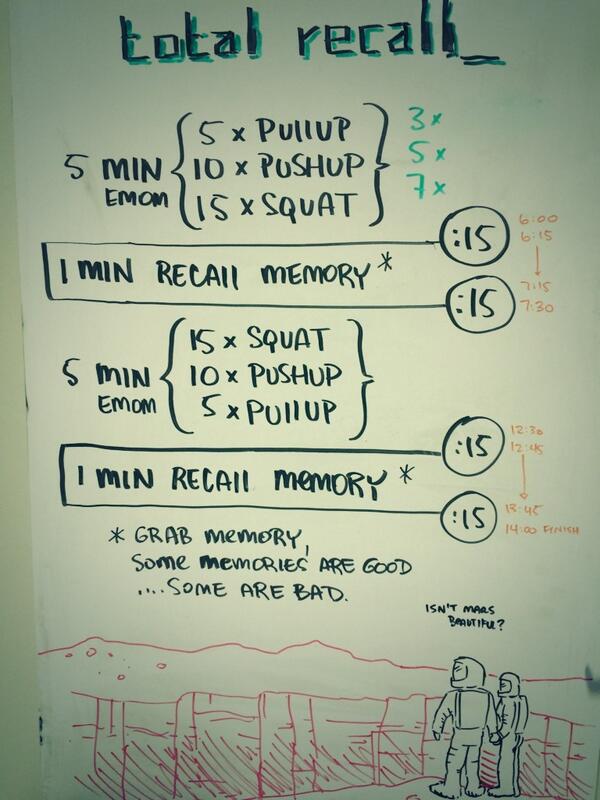 total recall_
5 MIN
EMOM
5 x PUllUP
10 x PUSHUP
15 x SQUAT
3x
5x
7x
:15
6:00
6:15
1 MIN RECAll MEMORY *
7:15
:15
7:30
5 MIN
EMOM
15 x SQUAT
10 x PUSHUP
5 x PUllUP
:15
12:30
12:45
1 MIN RECAll memoRY *
13:45
:15
14:00 FINISH
* GRAB memoRY,
Some memoRIES ARE GOOD
....SOME ARE BAD.
ISN'T MARS
BEAUTIFUL?